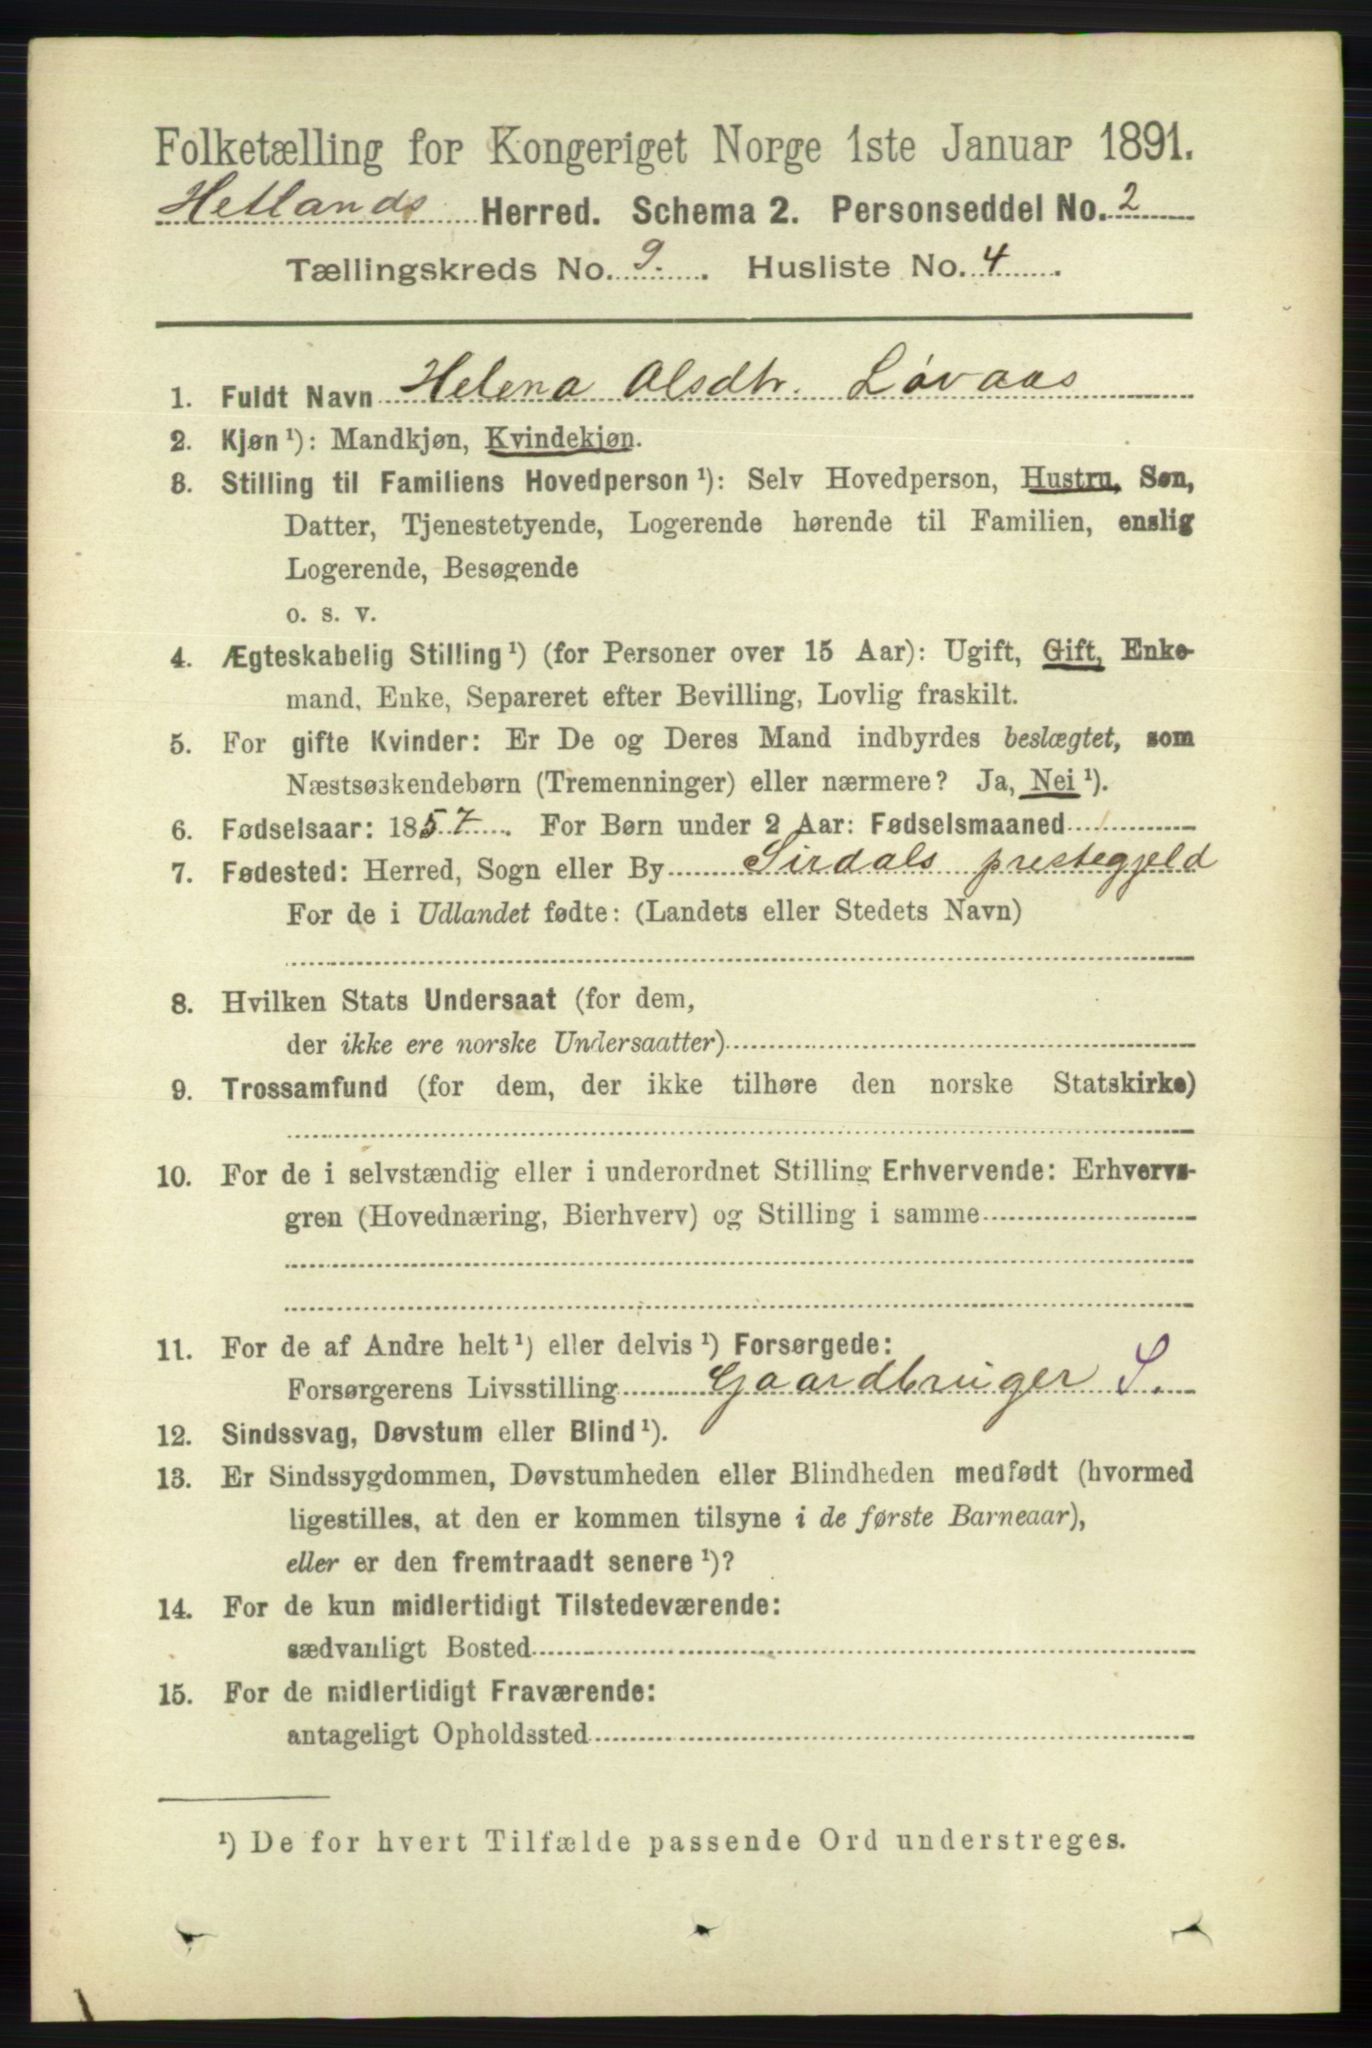 Folketælling for Kongeriget Norge 1ste Januar 1891.
Hetlands Herred. Schema 2. Personseddel No. 2
Tællingskreds No. 9. Husliste No. 4.
1. Fuldt Navn Helena Olsdtr. Løvaas
2. Kjøn ¹): Mandkjøn, Kvindekjøn.
3. Stilling til Familiens Hovedperson ¹): Selv Hovedperson, Hustru, Søn,
Datter, Tjenestetyende, Logerende hørende til Familien, enslig
Logerende, Besøgende
o. s. v.
4. Ægteskabelig Stilling ¹) (for Personer over 15 Aar): Ugift, Gift, Enke-
mand, Enke, Separeret efter Bevilling, Lovlig fraskilt.
5. For gifte Kvinder: Er De og Deres Mand indbyrdes beslægtet, som
Næstsøskendebørn (Tremenninger) eller nærmere? Ja, Nei ¹).
6. Fødselsaar: 1857. For Børn under 2 Aar: Fødselsmaaned
7. Fødested: Herred, Sogn eller By Sirdals prestegjeld
For de i Udlandet fødte: (Landets eller Stedets Navn)
8. Hvilken Stats Undersaat (for dem,
der ikke ere norske Undersaatter)
9. Trossamfund (for dem, der ikke tilhøre den norske Statskirke)
10. For de i selvstændig eller i underordnet Stilling Erhvervende: Erhvervs-
gren (Hovednæring, Bierhverv) og Stilling i samme
11. For de af Andre helt ¹) eller delvis ¹) Forsørgede:
Forsørgerens Livsstilling Gaardbruger S.
12. Sindssvag, Døvstum eller Blind ¹).
13. Er Sindssygdommen, Døvstumheden eller Blindheden medfødt (hvormed
ligestilles, at den er kommen tilsyne i de første Barneaar),
eller er den fremtraadt senere ¹)?
14. For de kun midlertidigt Tilstedeværende:
sædvanligt Bosted
15. For de midlertidigt Fraværende:
antageligt Opholdssted
¹) De for hvert Tilfælde passende Ord understreges.